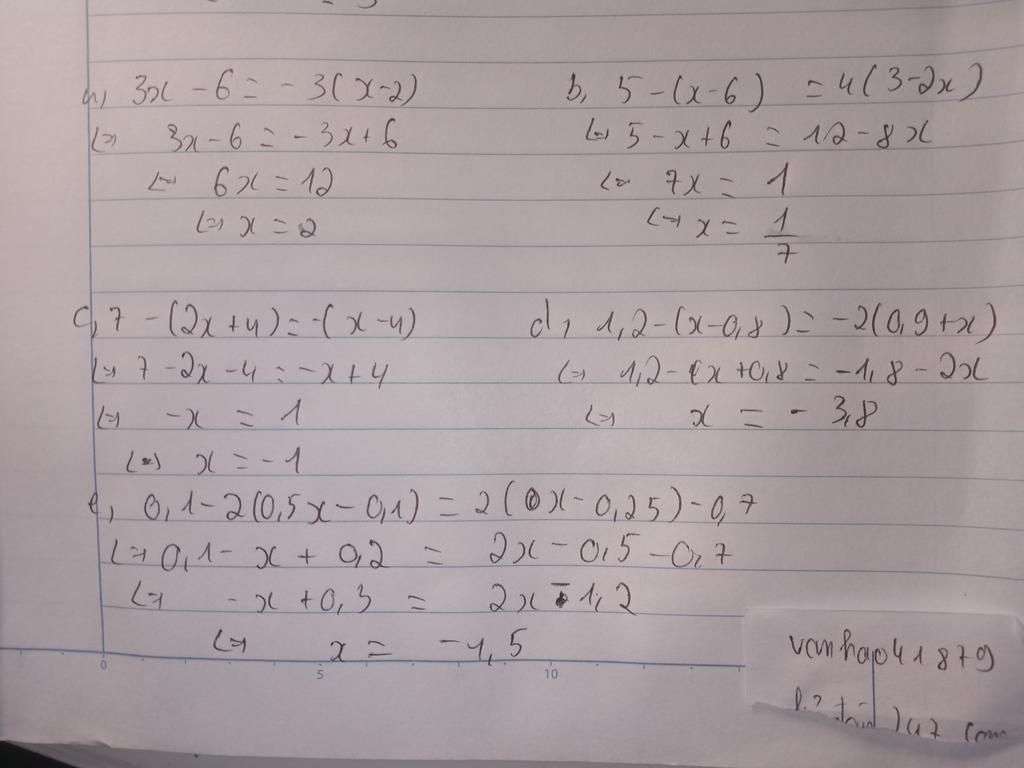 a, 3x - 6 = - 3(x-2)
<-> 3x-6 = -3x+6
<-> 6x = 12
<-> x = 2
b, 5 - (x-6) = 4(3-2x)
<-> 5 - x+6 = 12 - 8x
<-> 7x = 1
<-> x = 1/7
c, 7 - (2x+4) = -(x-4)
<-> 7 - 2x - 4 = -x+4
<-> -x = 1
<-> x = -1
d, 1,2-(x-0,8) = -2(0,9+x)
<-> 1,2-x+0,8 = -1,8 - 2x
<-> x = - 3,8
e, 0,1-2(0,5x-0,1) = 2(x-0,25)-0,7
<-> 0,1- x + 0,2 = 2x - 0,5 - 0,7
<-> -x+0,3 = 2x - 1,2
<-> x = -1,5
0 5 10
vanhap41879